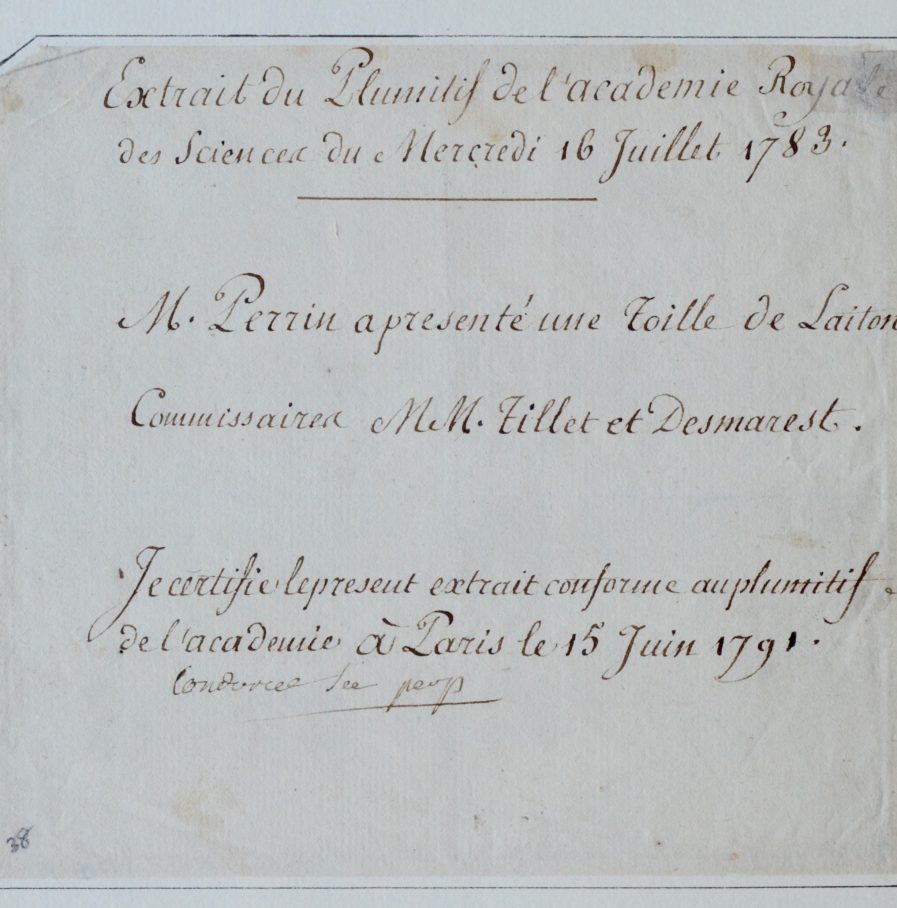 Extrait du Plumitif de l'academie Royale
des Sciences du Mercredi 16 Juillet 1783.
M. Perrin a presenté une Toille de Laiton
Commissaires MM. Tillet et Desmarest.
Je certifie le present extrait conforme au plumitif
de l'academie à Paris le 15 Juin 1791.
Condorcet Sec perp
38